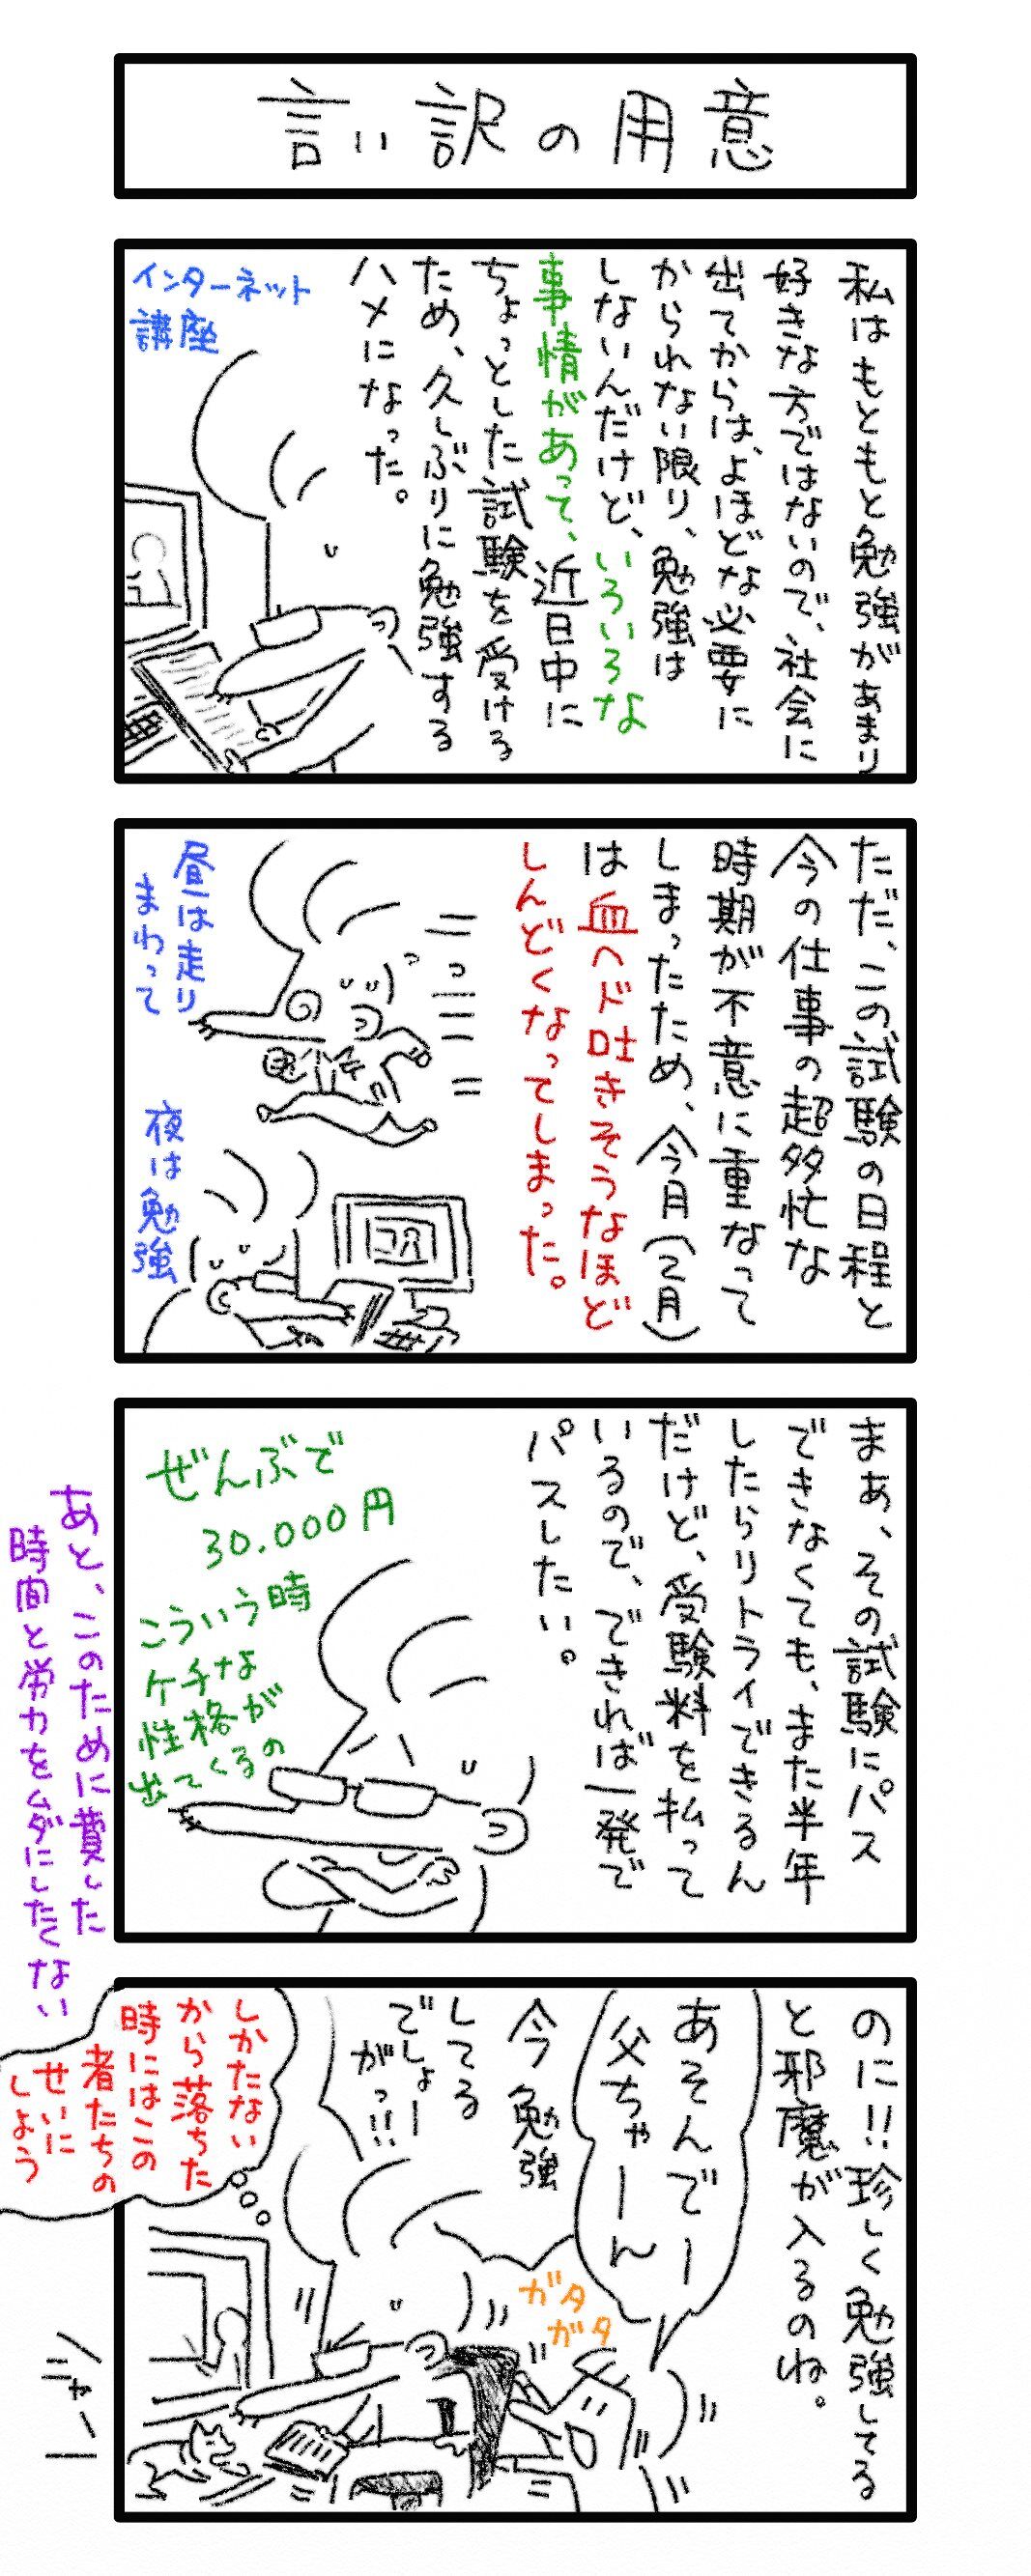 言い訳の用意
私はもともと勉強があまり
好きな方ではないので、社会に
出てからは、よほどな必要に
かられない限り、勉強は
しないんだけど、いろいろな
事情があって、近日中に
ちょっとした試験を受ける
ため、久しぶりに勉強する
ハメになった。
インターネット
講座
ただ、この試験の日程と
今の仕事の超多忙な
時期が不意に重なって
しまったため、今月(2月)
は血ヘド吐きそうなほど
しんどくなってしまった。
昼は走り
まわって
夜は勉強
まぁ、その試験にパス
できなくても、また半年
したらリトライできるん
だけど、受験料を払って
いるので、できれば一発で
パスしたい。
ぜんぶで
30.000円
こういう時
ケチな
性格が
出てくるの
あと、このために費した
時間と労力をムダにしたくない
のに!!珍しく勉強してる
と邪魔が入るのね。
あそんでー
父ちゃーん
今勉強
してる
でしょー
がっ!!
ガタ
ガタ
しかたない
から落ちた
時にはこの
者たちの
せいに
しよう